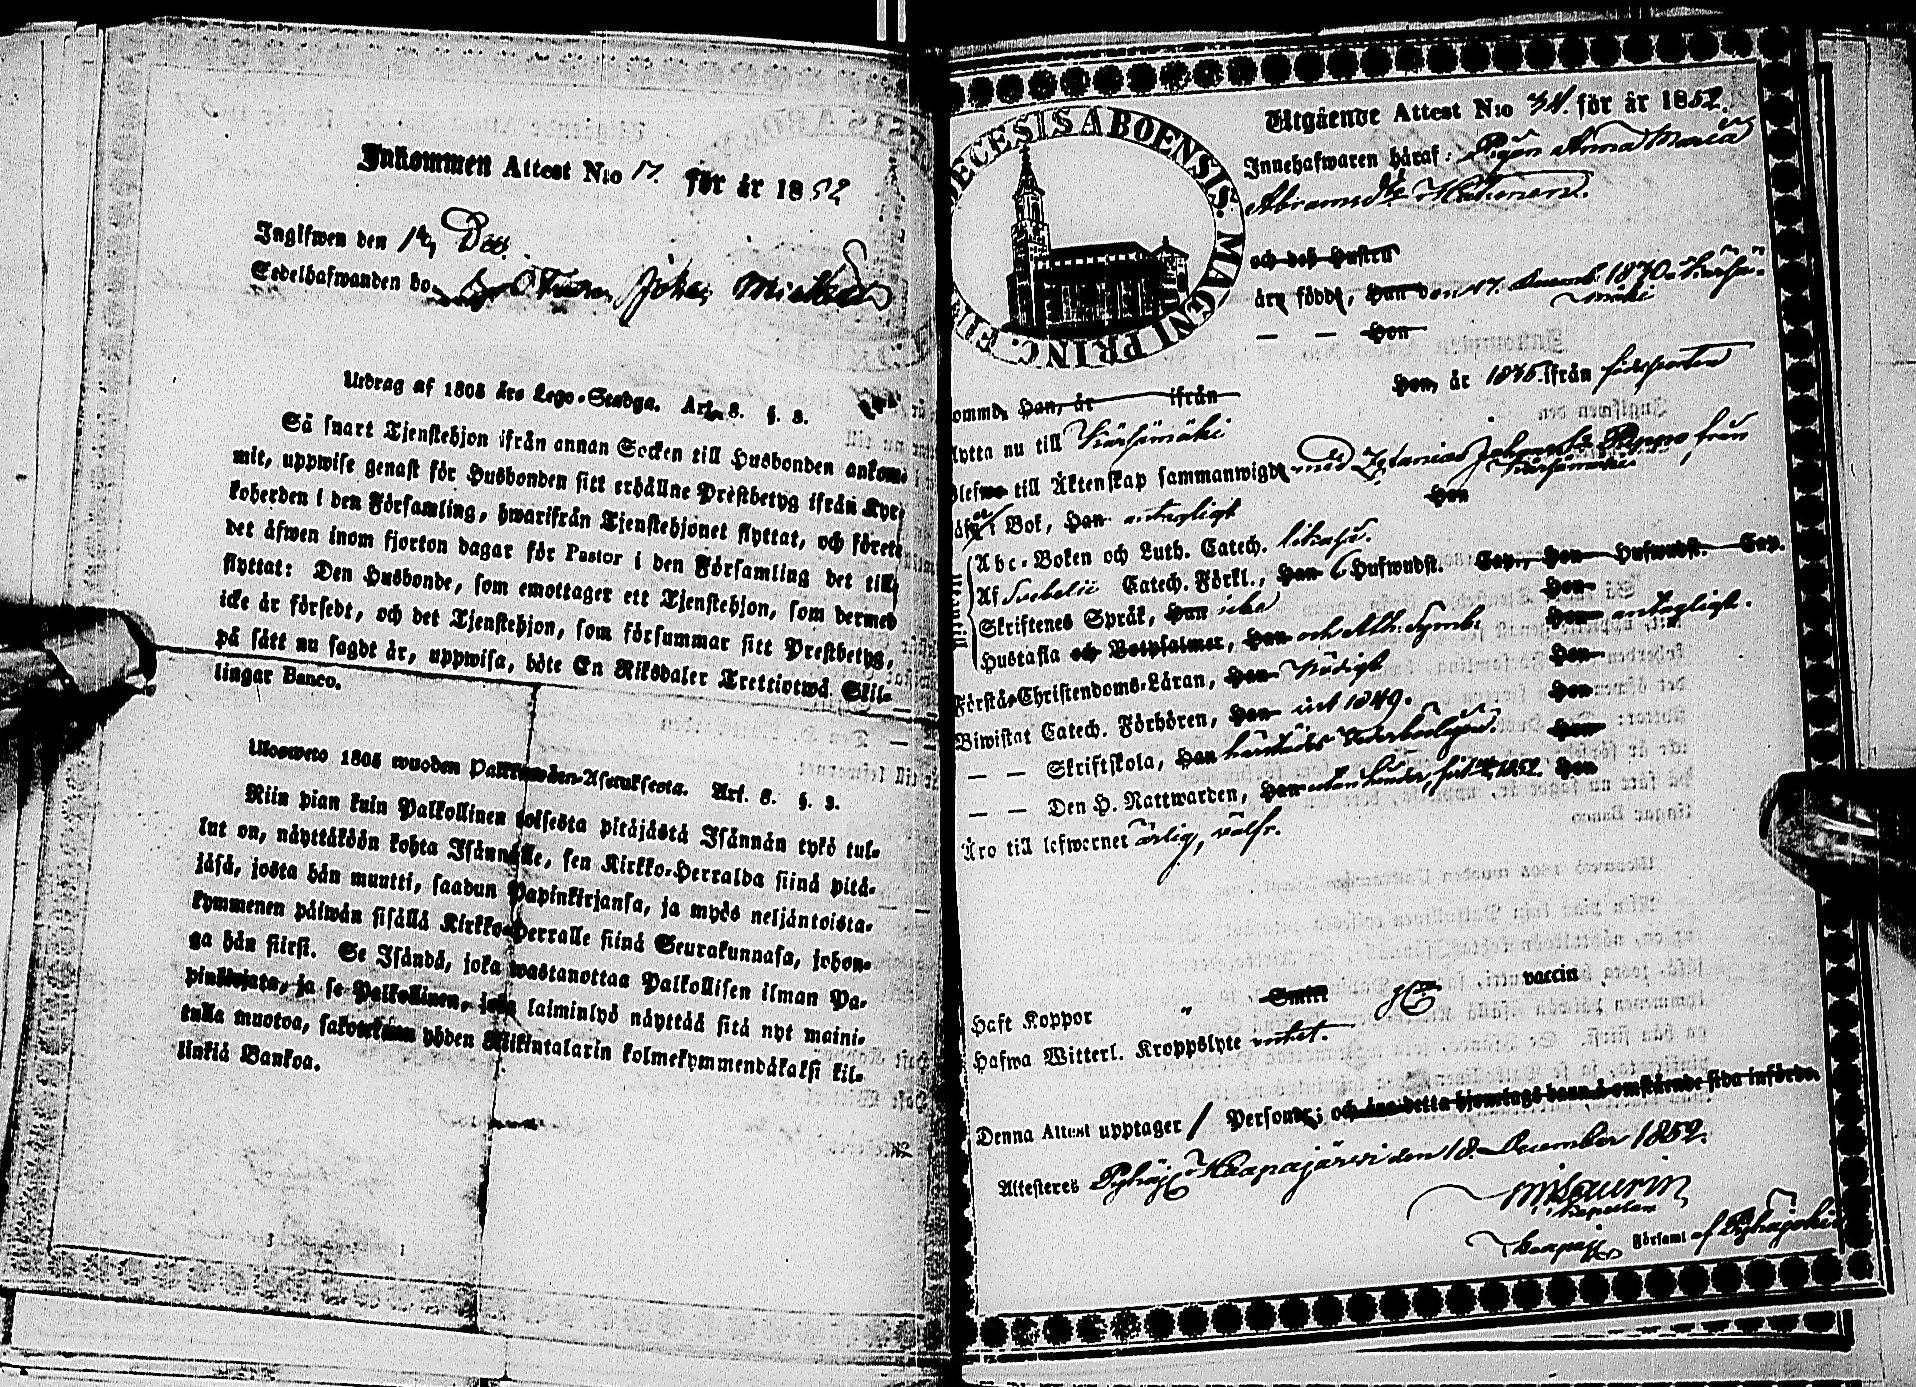 Inkommen Attest N:o 17. för år 1852
Ingifwen den Dec.
Sedelhafwanden bo
Utdrag af 1805 års Lego-Stadga. Art. 8. §. 3.
Så snart Tjenstehjon ifrån annan Socken till Husbonden ankom-
mit, uppwise genast för Husbonden sitt erhållne Prestbetyg ifrån Kyr-
koherden i den Församling, hwarifrån Tjenstehjonet flyttat, och förete
det åfwen inom fjorton dagar för Pastor i den Församling det till-
flyttat: Den Husbonde, som emottager ett Tjenstehjon, som dermed
icke är försedt, och det Tjenstehjon, som försummar sitt Prestbetyg,
på sätt nu sagdt är, uppwisa, böte En Riksdaler Trettiotwå Skil-
lingar Banco.
Ulosweto 1805 wuoden Palkkawäen-Asetuksesta. Art. 8. §. 3.
Niin pian kuin Palkollinen toisesta pitäjästä Isännän tykö tul-
lut on, näyttäköön kohta Isännälle, sen Kirkko-Herralda siinä pitä-
jäsä, josta hän muutti, saadun Papinkirjansa, ja myös neljäntoista-
kymmenen päiwän sisällä Kirkko-Herralle siinä Seurakunnasa, johon-
ga hän siirsi. Se Isändä, joka wastanottaa Palkollisen ilman Pa-
pinkirjata, ja se Palkollinen, joka laiminlyö näyttää sitä nyt maini-
tulla muotoa, sakotetaan yhden Riikintalarin kolmekymmendäkaksi kil-
linkiä Bankoa.
DIOECESIS ABOENSIS. MAGNI PRINC. FIN
Utgående Attest N:o 34. för år 1852.
Innehafwaren häraf: Pigan Anna Maria
Abramsdr
och dess Hustru
äro födde, Han den 17. Decemb. 1830 i Kärsä-
mäki
— — Hon
komm. Han, år ifrån Hon, år ifrån födsporten
flytta nu till Kärsämäki
blefwo till Äktenskap sammanwigde med Zefanias Johansson från
Kärsämäki
läser i Bok, Han antagligt Hon
Abc-Boken och Luth. Catech.
Af Svebelii Catech. Förkl., Han 6 Hufwudst. Cap., Hon Hufwudst. Cap.
Skriftenes Språk, Han icke Hon
Hustafla och Botpsalmer, Han och Ath. Symb. Hon antagligt.
Förstå Christendoms-Läran, Han Hon
Biwistat Catech. Förhören, Han sist 1849. Hon
— — Skriftskola, Han Hon
— — Den H. Nattwarden, Han 1852. Hon
Äro till lefwernet ärlig, välfr.
Haft Koppor Smitt vaccin
Hafwa Witterl. Kroppslyte intet.
Denna Attest upptager 1 Personer; och äro detta hjonelags barn å omstående sida införde.
Attesteres Pyhäj. Haapajärvi den 18. December 1852.
Kapellan
Haapaj. Församl. af Pyhäjoki